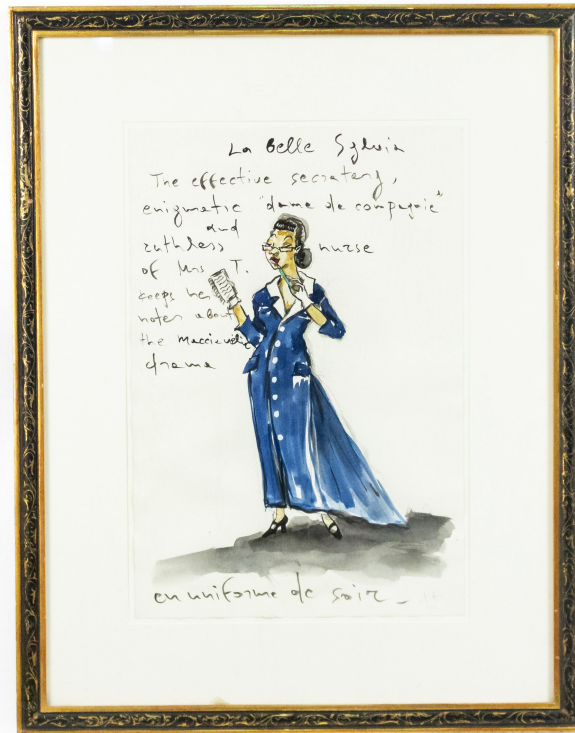 La Belle Sylvia
The effective secretary,
enigmatic "dame de compagnie"
and
ruthless nurse
of Mrs T.
keeps her
notes about
the Macciavelic
drama
en uniforme de soir